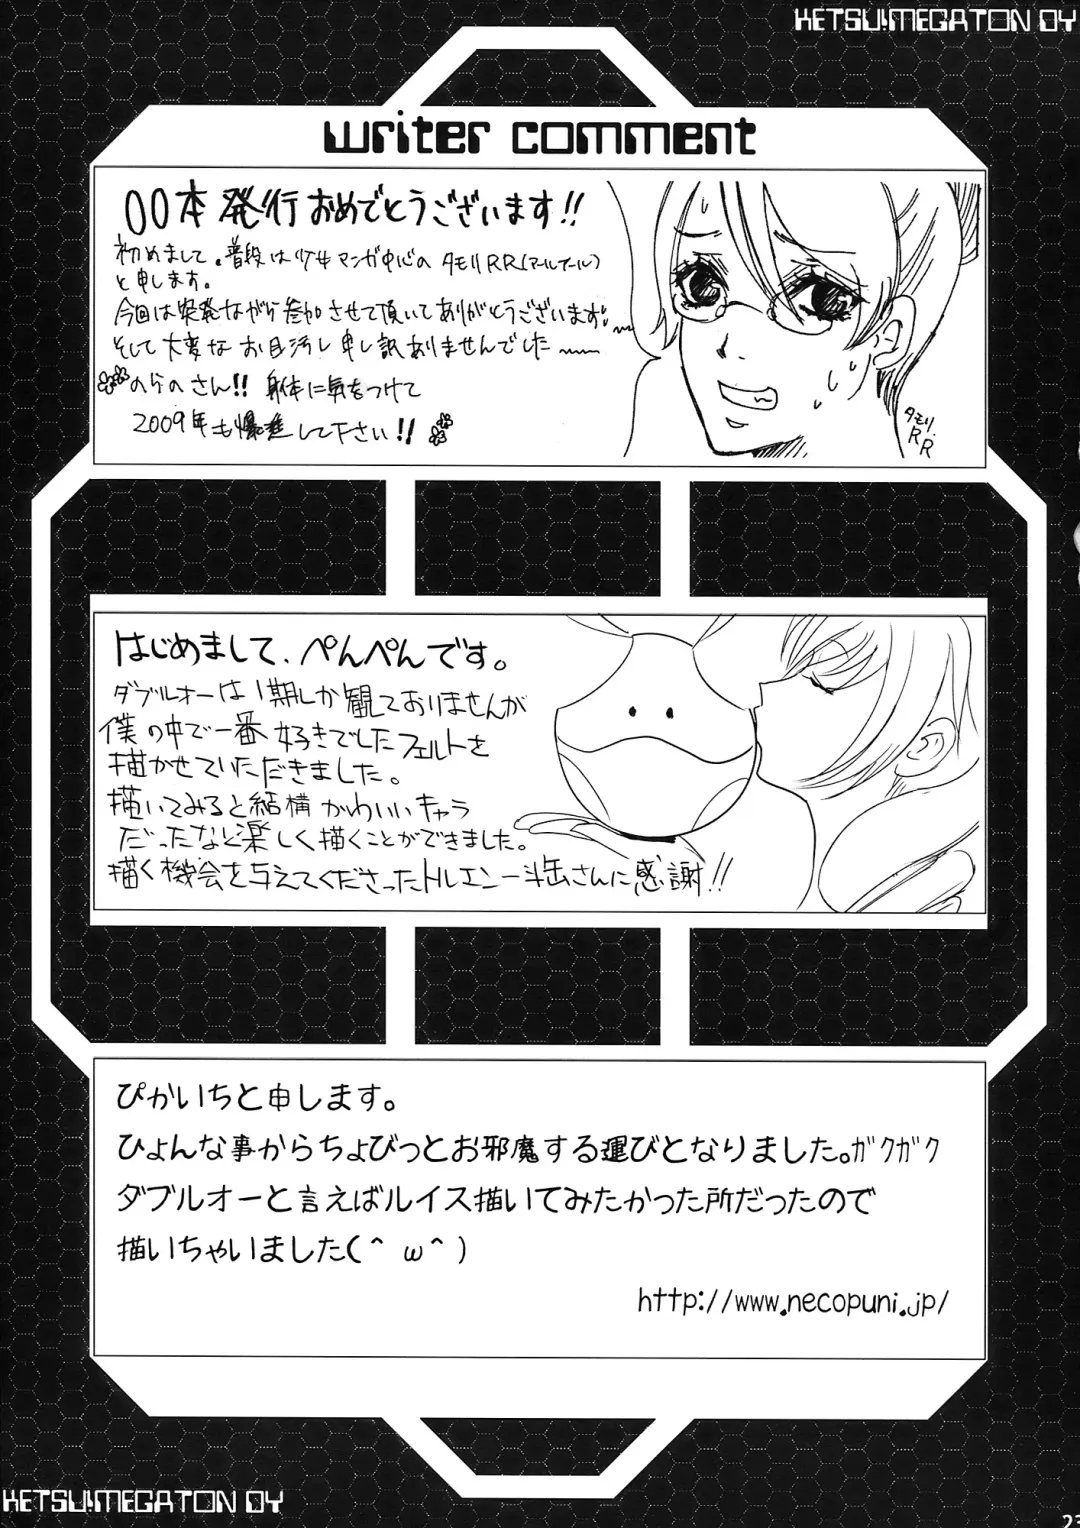 KETSU!MEGATON OY
writer comment
00本 発行 おめでとうございます!!
初めまして。普段は少女マンガ中心の タモリRR(アールアール)
と申します。
今回は突発ながら参加させて頂いてありがとうございます。
そして大変なお目汚し申し訳ありませんでした
のらのさん!! 身体に気をつけて
2009年も爆進して下さい!!
タモリ.
RR
はじめまして、ぺんぺんです。
ダブルオーは1期しか観ておりませんが
僕の中で一番好きでしたフェルトを
描かせていただきました。
描いてみると結構かわいいキャラ
だったなと楽しく描くことができました。
描く機会を与えてくださったトルエン一斗缶さんに感謝!!
ぴかいちと申します。
ひょんな事からちょびっとお邪魔する運びとなりました。ガクガク
ダブルオーと言えばルイス描いてみたかった所だったので
描いちゃいました(＾ω＾)
http://www.necopuni.jp/
KETSU!MEGATON OY
23